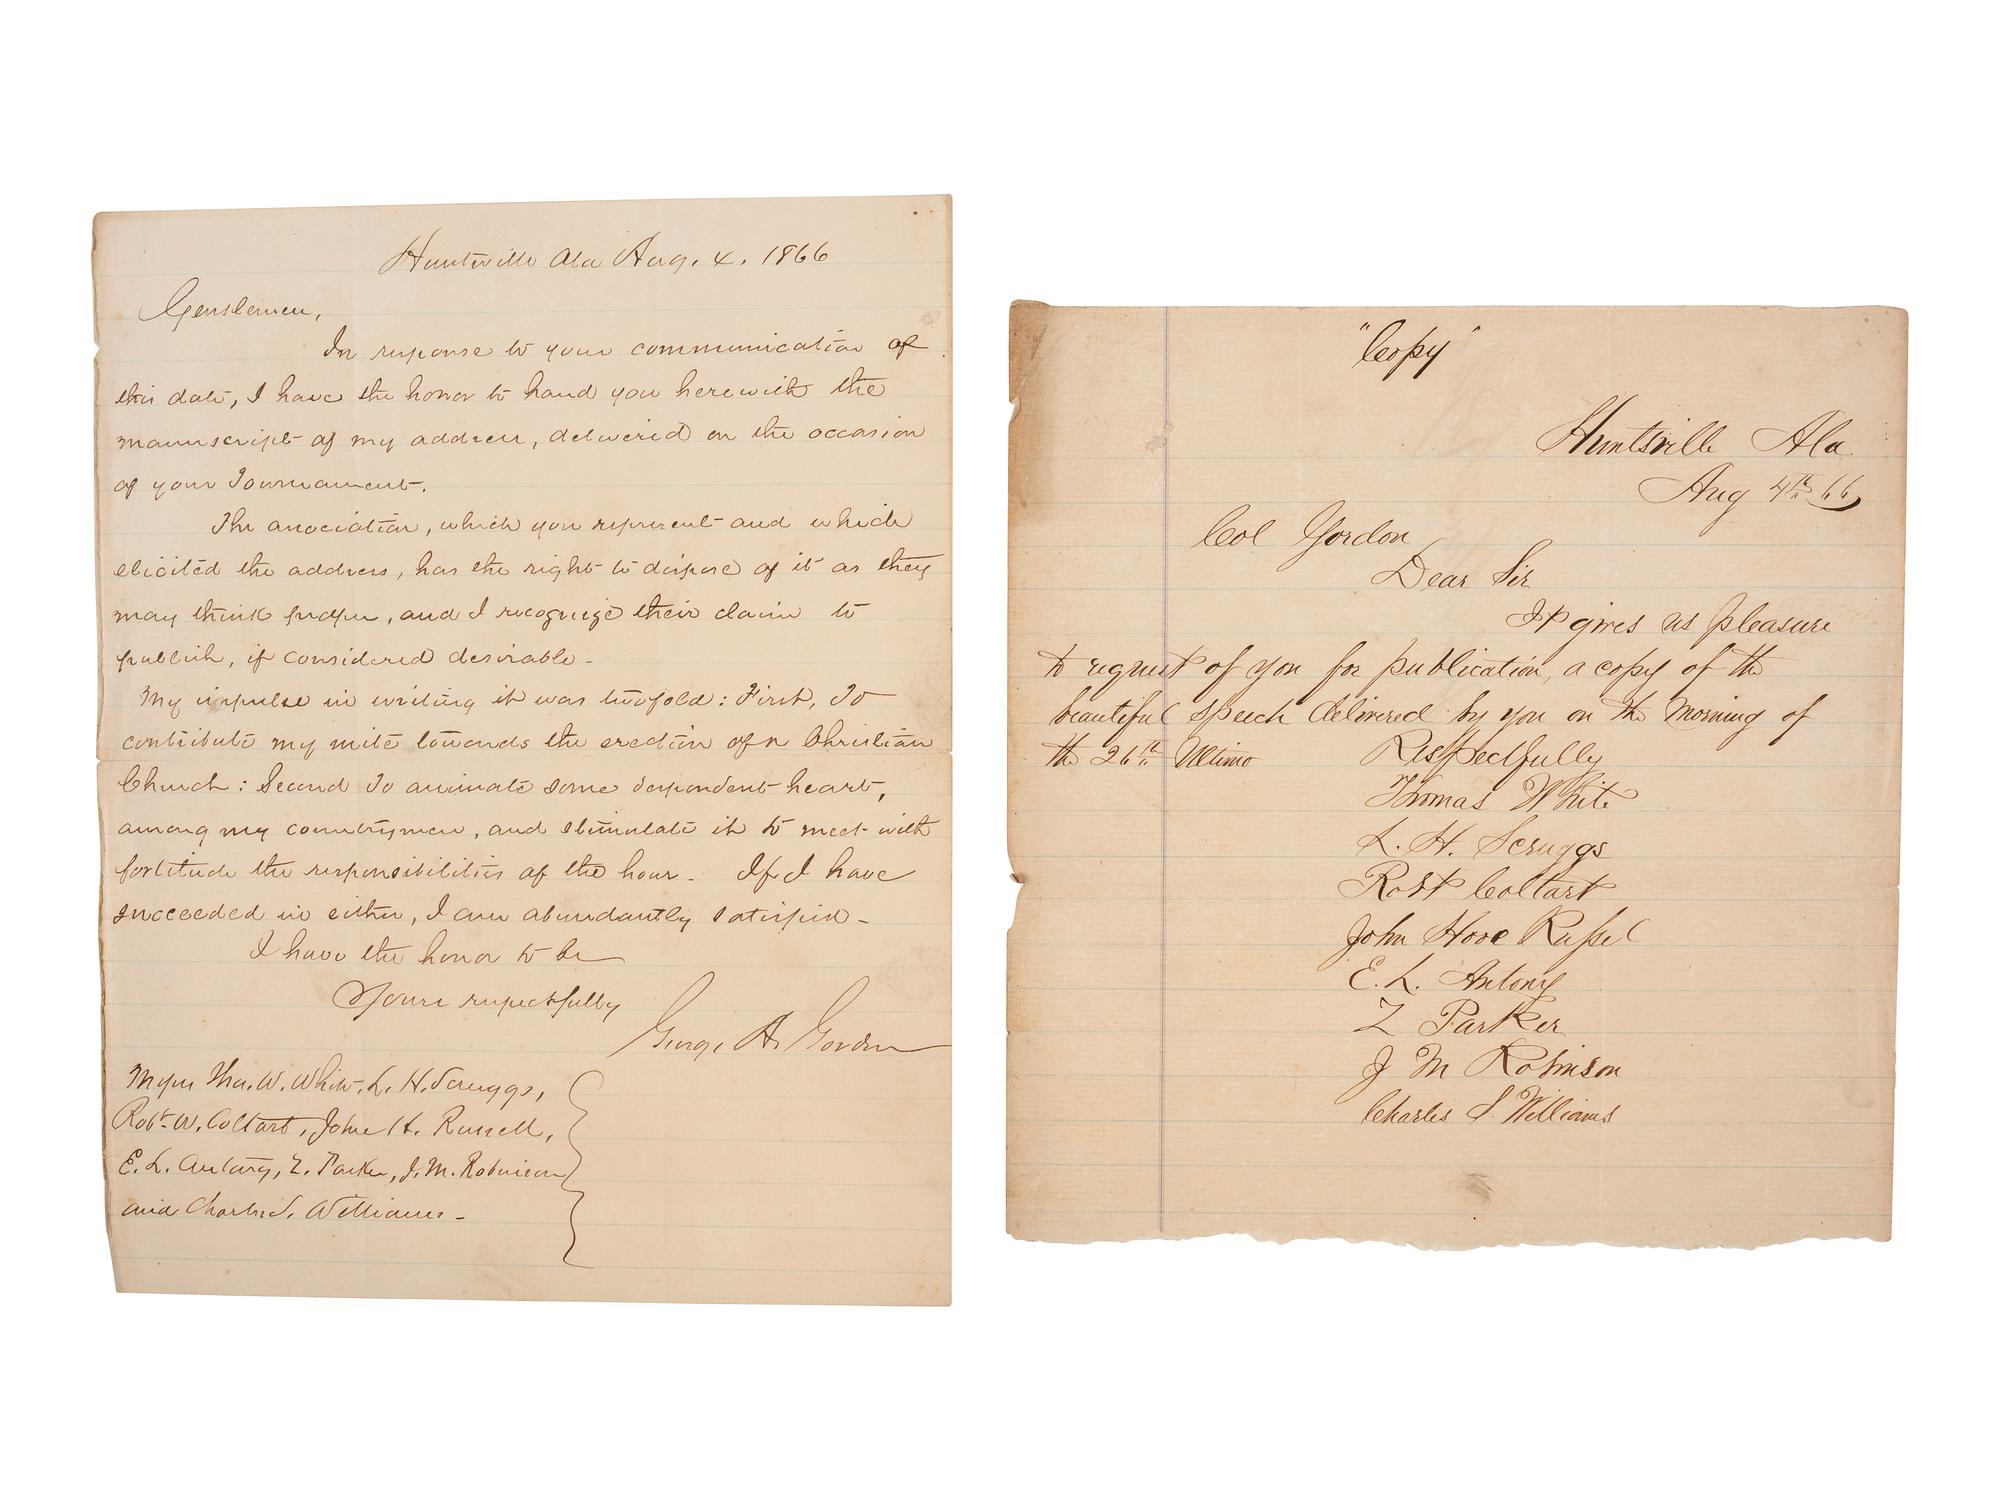 Huntsville Ala Aug. 4. 1866
Gentlemen,
In response to your communication of
this date, I have the honor to hand you herewith the
manuscript of my address, delivered on the occasion
of your Tournament.
The association, which you represent and which
elicited the address, has the right to dispose of it as they
may think proper, and I recognize their claim to
publish, if considered desirable.
My impulse in writing it was twofold: First, To
contribute my mite towards the erection of a Christian
Church: Second To animate some despondent heart,
among my countrymen, and stimulate it to meet with
fortitude the responsibilities of the hour. If I have
succeeded in either, I am abundantly satisfied.
I have the honor to be
Yours respectfully
George A. Gordon
Messrs Tho. W. White, L. H. Scruggs,
Robt. W. Coltart, John H. Russell,
E. L. Antony, Z. Parker, J. M. Robinson
and Charles S. Williams.
"Copy"
Huntsville Ala
Aug 4th 66
Col Gordon
Dear Sir
It gives us pleasure
to request of you for publication, a copy of the
beautiful speech delivered by you on the morning of
the 26th Ultimo
Respectfully
Thomas White
L. H. Scruggs
Robt Coltart
John Hove Russel
E. L. Antony
Z Parker
J M Robinson
Charles S. Williams